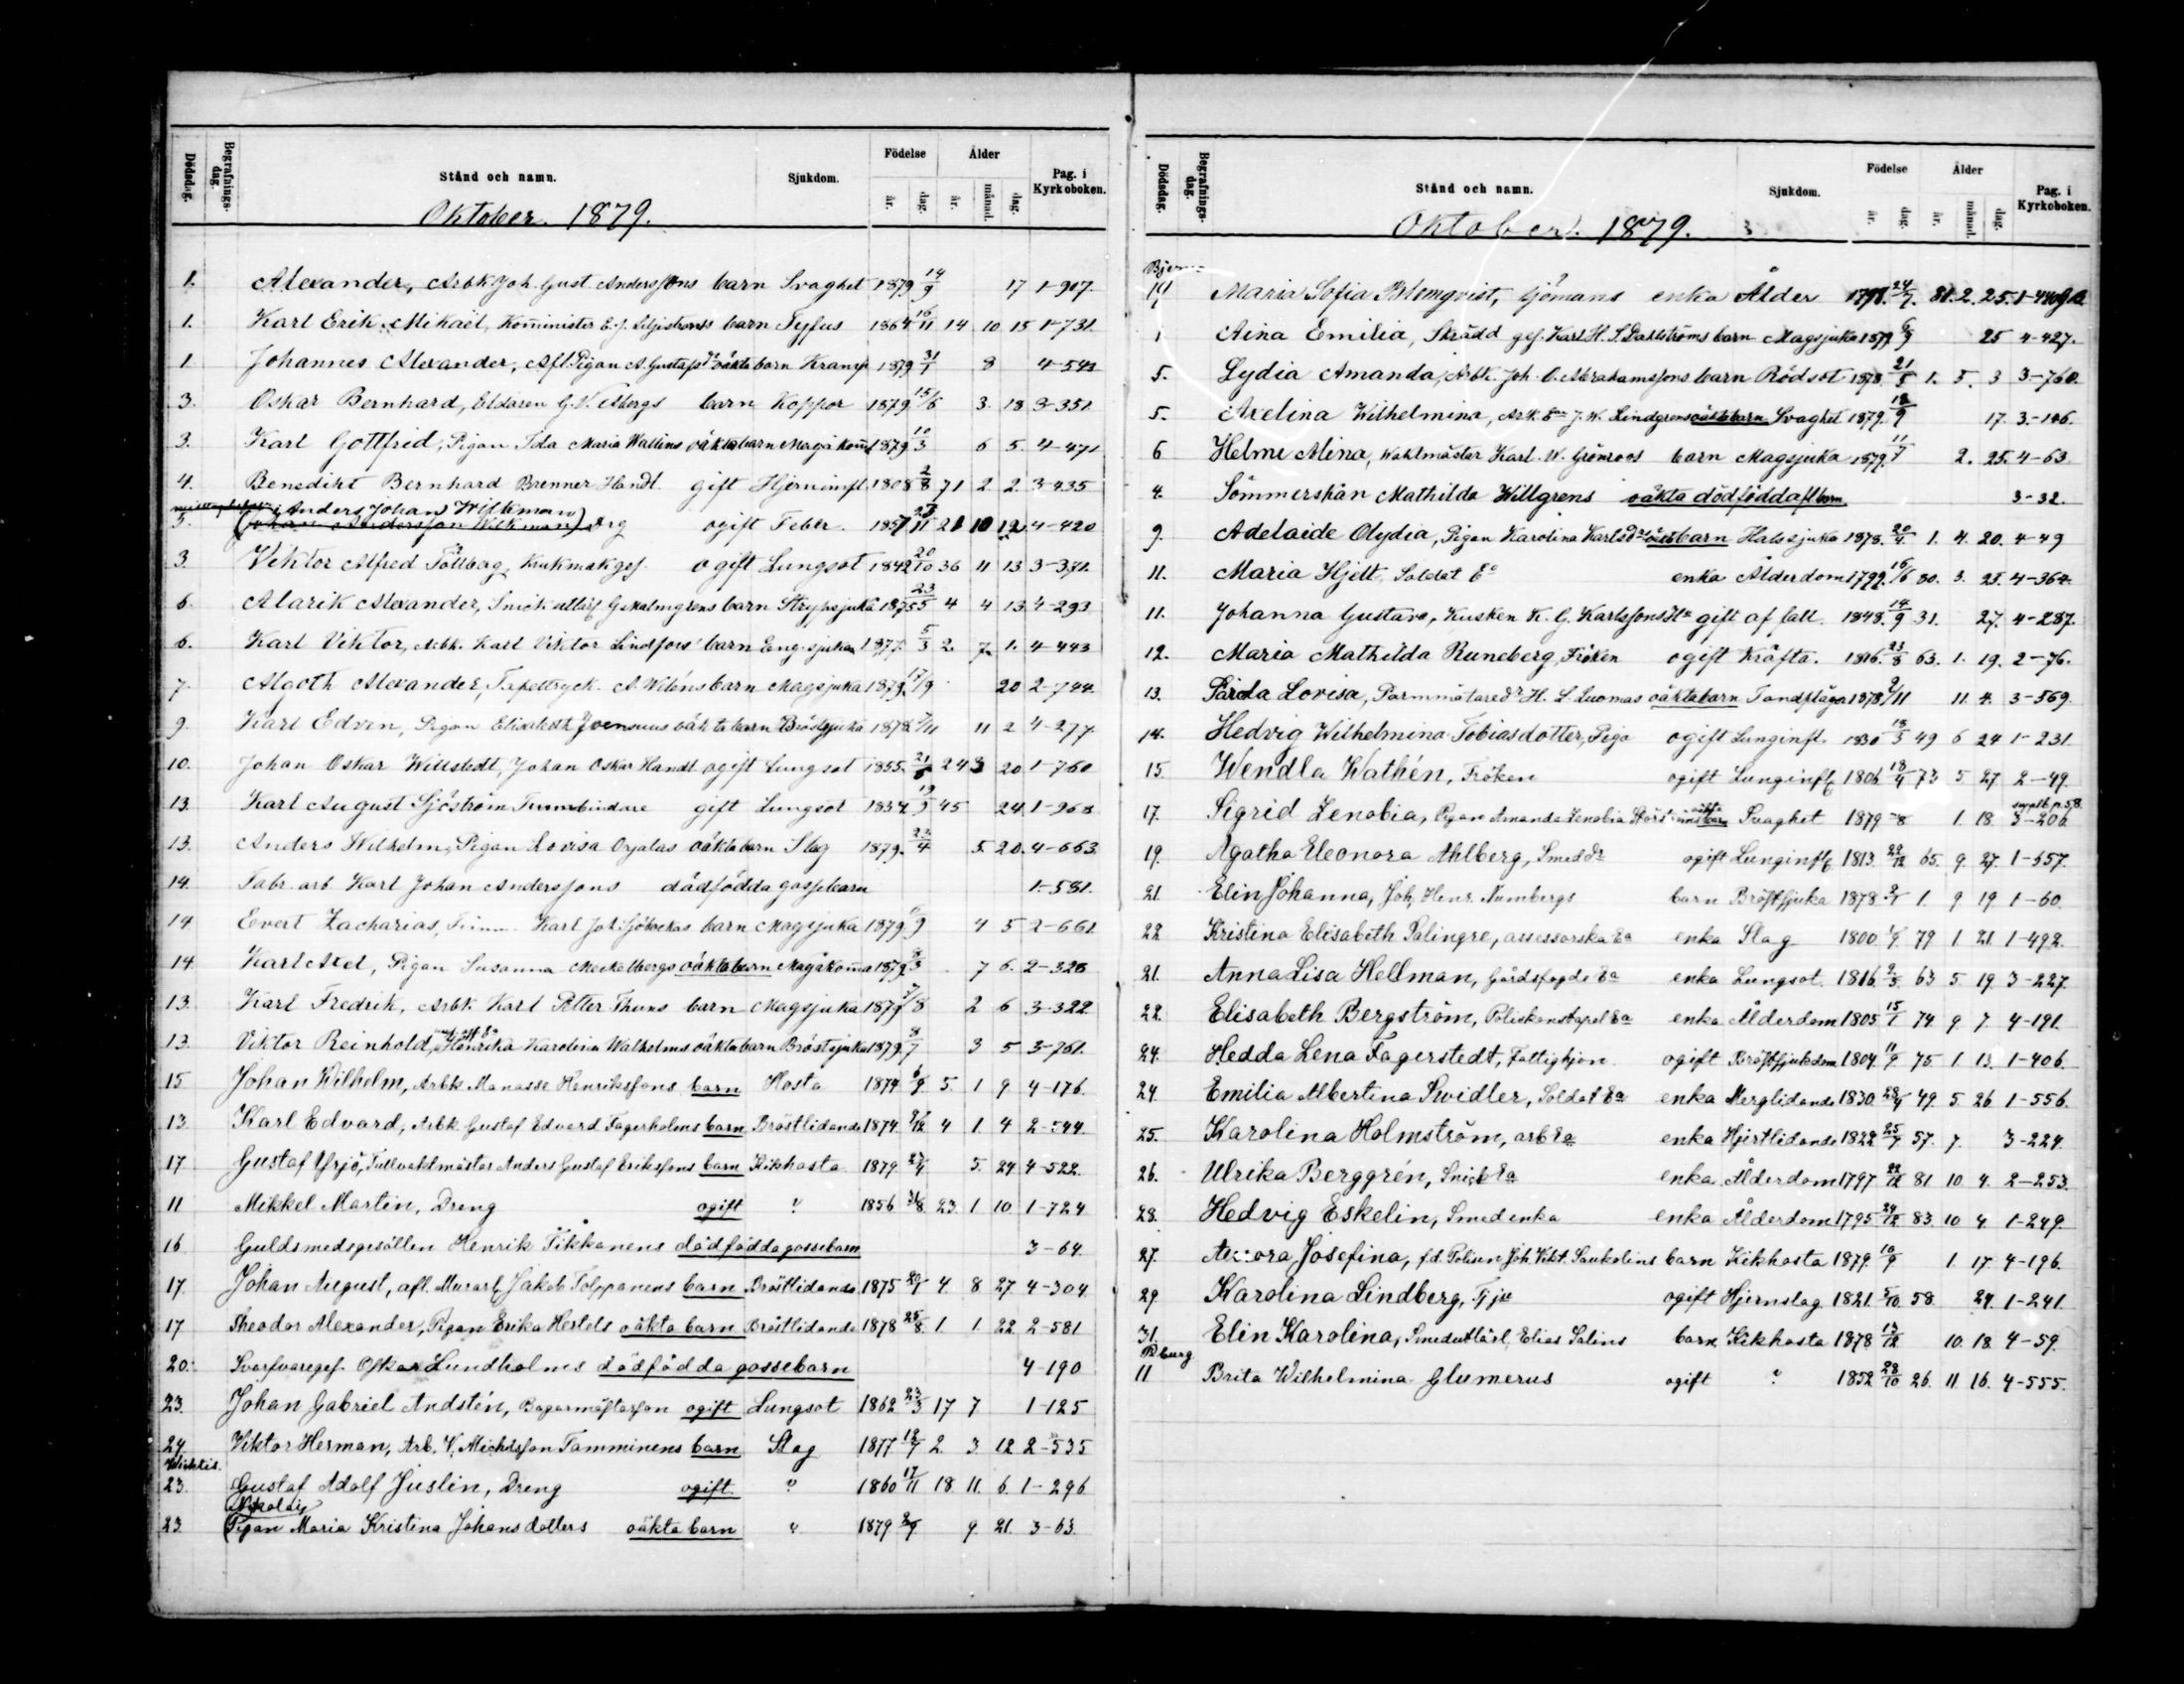 Dödsdag. Begrafningsdag. Stånd och namn. Sjukdom. Födelse år. dag. Ålder år. månad. dag. Pag. i Kyrkoboken.
Oktober. 1879.
1. Alexander, Arbk Joh. Gust. Anderssons barn Svaghet 1879 14/9 17 1-907.
1. Karl Erik Mikaël, Komminister E. J. barn Tyfus 1864 16/11 14 10 15 1-731.
1. Johannes Alexander, Afl. Pigan A. Gustafsdr oäkta barn Kramp 1879 31/1 8 4-542
3. Oskar Bernhard, Eldaren G. V. barn Koppor 1879 15/6 3. 18 3-351.
3. Karl Gottfrid, Pigan Ida Maria Wallins oäkta barn Magåkom̃a 1879 10/3 6 5. 4-471
4. Benedikt Bernhard Brenner Handl. gift Hjerninfl. 1808 2/8 71 2 2. 3-435
Anders Johan Wilkman
5. (Johan Andersson Wilkman) ogift Feber. 1857 21 10 12. 4-420
3. Viktor Alfred Tållberg, Krukmak.ges. ogift Lungsot 1842 20/10 36 11 13 3-371.
6. Alarik Alexander, Snick. utlärl. G. Holmgrens barn Strypsjuka 1875 23/5 4 4 13. 4-293
6. Karl Viktor, Arbk. Karl Viktor Lindfors' barn Eng. sjukan 1877. 5/3 2. 7. 1. 4-443
7. Algoth Alexander, Tapettryck. A. Wiléns barn Magsjuka 1879. 17/9 20 2-744.
9. Karl Edvin, Pigan Elisabeth Joensuus oäkta barn Bröstsjuka 1878. 7/11 11 2 4-277.
10. Johan Oskar Willstedt, Johan Oskar Handl. ogift Lungsot 1855. 24 3 20. 1-760
13. Karl August Sjöström Tunnbindare gift Lungsot 1834. 19/9 45 24.
13. Anders Wilhelm, Pigan Lovisa Orjalas oäkta barn Slag 1879. 23/4 5. 20. 4-663.
14. Fabr. arb. Karl Johan Anderssons dödfödda gossebarn 1-581.
14. Evert Zacharias, Karl Joh. barn Magsjuka 1879 4 5 2-661.
14. Karl Axel, Pigan Susanna Meckelbergs oäkta barn Magåkom̃a 1879. 8/3 7 6. 2-328
13. Karl Fredrik, Arbk Karl Petter Thuns barn Magsjuka 1879 7/8 2 6 3-322
13. Viktor Reinhold, Henrika Karolina Walholms oäkta barn Bröstsjuka 1879. 3 5 3-761.
15 Johan Wilhelm, Arbk Manasse Henrikssons barn Hosta 1874 6/9. 5. 1 9 4-176.
13. Karl Edvard, Arbk. Gustaf Edvard Fagerholms barn Bröstlidande 1874. 9/12 4 1. 4 2-544.
17 Gustaf Yrjö, Tullvaktmästar Anders Gustaf Erikssons barn Kikhosta 1879. 23/4 5. 24 4-522.
11 Mikkel Martin, Dreng ogift " 1856 21/8. 23. 1 10. 1-724
16 Guldsmedsgesällen Henrik Tikkanens dödfödda gossebarn 3-64.
17. Johan August, afl. Murarl. Jakob Tolppanens barn Bröstlidande 1875 20/1 4. 8 27. 4-304
17 Theodor Alexander, Pigan Erika Hertels oäkta barn Bröstlidande 1878 25/8. 1. 1 22. 2-581
20. Svarfvareges. Oskar Lundholms dödfödda gossebarn 4-190
23. Johan Gabriel Andstén, Bagarmästarson ogift Lungsot 1862 23/3 17 7 1-125
24. Viktor Herman, Arb. V. Michelsson Tamminens barn Slag 1877 12/7 2. 3. 12 2-535
Wichtis.
23. Gustaf Adolf Juslin, Dreng ogift " 1860 17/11 18 11. 6. 1-296
Nikolai
23. (Pigan Maria Kristina Johansdotters oäkta barn " 1879 2/1 9. 21. 3-63.
Dödsdag. Begrafningsdag. Stånd och namn. Sjukdom. Födelse år. dag. Ålder år. månad. dag. Pag. i Kyrkoboken.
Oktober. 1879.
Maria Sofia Blomqvist, Sjömans enka Ålder 1798. 24/7. 81. 2. 25.
1 Aina Emilia, Skrädd ges. Karl H. S. Dahlströms barn Magsjuka 1879 6/9 25 4-427.
5. Lydia Amanda, Arbk. Joh. O. Abrahamssons barn Rödsot 1878. 21/5 1. 5. 3 3-760.
5. Axelina Wilhelmina, Ark. Ea J. W. Lindgrens oäkta barn Svaghet 1879. 18/9 17. 3-146.
6 Helmi Alina, Waktmäster Karl W. Grönroos barn Magsjuka 1879. 11/7 2. 25. 4-63.
4. Sömmerskan Mathilda Willgrens oäkta dödfödda fl. barn 3-32.
9. Adelaide Olydia, Pigan Karolina Karlsdrs oäkta barn Halssjuka 1878. 20/4. 1. 4. 20. 4-49
11. Maria Hjelt, Soldat Ea enka Ålderdom 1799. 16/6 80. 3. 25. 4-364.
11. Johanna Gustava, Kusken K. G. Karlssons Hu gift af fall. 1848. 14/9 31. 27. 4-287.
12. Maria Mathilda Runeberg, Fröken ogift Kräfta. 1816. 23/8 63. 1. 19. 2-76.
13. Lovisa, H. L. Luomas oäkta barn Tandplågor 1878 9/11 11. 4. 3-569.
14. Hedvig Wilhelmina Tobiasdotter, Piga ogift Lunginfl. 1830 18/3 49 6 24 1-231.
15. Wendla Wathén, Fröken ogift Lunginfl. 1806 18/4 73 5 27 2-49.
17. Sigrid Zenobia, Pigan Amanda Zenobia oäkta barn Svaghet 1879 1. 18. 3-206.
19. Agatha Eleonora Ahlberg, Smeddr ogift Lunginfl. 1813. 22/12 65. 9. 27. 1-557.
21. Elin Johanna, Joh. Henr. Numbergs barn Bröstsjuka 1878 2/1 1. 9 19. 1-60.
22 Kristina Elisabeth Palingre, assessorska Ea enka Slag 1800. 1/9. 79 1. 21. 1-492.
21. Anna Lisa Hellman, Gårdsfogde Ea enka Lungsot. 1816. 2/5. 63 5. 19. 3-227.
22. Elisabeth Bergström, Poliskonstapel Ea enka Ålderdom 1805 15/1 74. 9 7. 4-191.
24. Hedda Lena Fagerstedt, Fattighjon. ogift Bröstsjukdom 1804. 11/9 75. 1. 13. 1-406.
24. Emilia Albertina Swidler, Soldat Ea enka 1830. 28/4 49. 5. 26. 1-556.
25. Karolina Holmström, arb Ea enka Hjertlidande 1822 25/3 57. 7. 3-224.
26. Ulrika Berggrén, Snick Ea enka Ålderdom 1797 22/12 81 10 4. 2-253.
28. Hedvig Eskelin, Smedenka enka Ålderdom 1795 24/12 83. 10 4 1-249.
27. Josefina, f.d. Polisen Joh. Vikt. Saukolins barn Kikhosta 1879. 10/9 1. 17. 4-196.
29. Karolina Lindberg, ogift Hjernslag 1821. 5/10. 58. 24. 1-241.
31. Elin Karolina, Smedutlärl. Elias Salins barn Kikhosta 1878 13/12 10. 18. 4-59.
11 Brita Wilhelmina Glumerus ogift " 1852 28/10 26. 11. 16. 4-555.